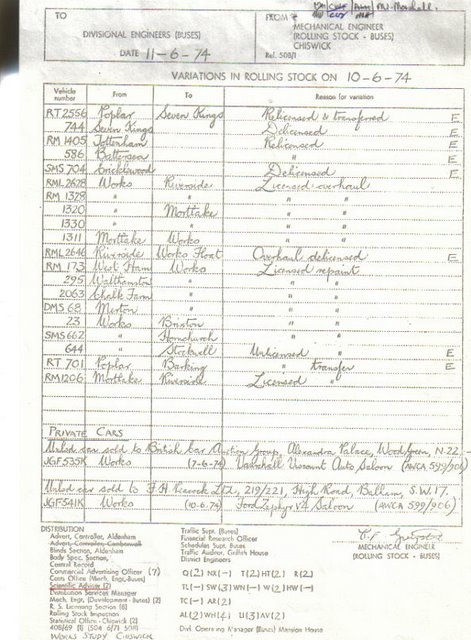 TO
FROM
Mr. Marshall.
DIVISIONAL ENGINEERS (BUSES)
MECHANICAL ENGINEER
(ROLLING STOCK - BUSES)
CHISWICK
DATE 11-6-74
Ref. 508/1
VARIATIONS IN ROLLING STOCK ON 10-6-74
Vehicle number From To Reason for variation
RT 2556 Poplar Seven Kings Relicensed & transferred E
744 Seven Kings Delicensed E
RM 1405 Tottenham Relicensed E
586 Battersea " E
SMS 704 Cricklewood Delicensed E
RML 2628 Works Riverside Licensed overhaul
RM 1328 " " " "
1320 " Mortlake " "
1330 " " " "
1311 Mortlake Works " "
RML 2646 Riverside Works Float Overhaul delicensed E
RM 173 West Ham Works Licensed repaint
295 Walthamstow " " "
2063 Chalk Farm " " "
DMS 68 Merton " " "
23 Works Brixton " "
SMS 662 " Hornchurch " "
644 " Stockwell Unlicensed " E
RT 701 Poplar Barking " transfer E
RM 1206 Mortlake Riverside Licensed "
PRIVATE CARS
Unlsd car sold to British Car Auction Group, Alexandra Palace, Wood Green, N.22.-
JGF535K Works (7-6-74) Vauxhall Viscount Auto Saloon (AWCA 599/906)
Unlsd car sold to F.H. Peacock Ltd, 219/221, High Road, Balham, S.W.17.
JGF541K Works (10.6.74) Ford Zephyr V4 Saloon (AWCA 599/906)
DISTRIBUTION
Advert. Controller, Aldenham
Advert. Controller Camberwell
Blinds Section, Aldenham
Body Spec. Section,
Central Record
Commercial Advertising Officer (7)
Costs Office (Mech. Engr.-Buses)
Scientific Adviser (2)
Distribution Services Manager
Mech. Engr. (Development - Buses) (2)
R. S. Licensing Section (8)
Rolling Stock Inspection
Statistical Office - Chiswick (2)
408/69 (1) 504 6/71 508/1
WORKS STUDY CHISWICK
Traffic Supt. (Buses)
Financial Research Officer
Schedules Supt. Buses
Traffic Auditor, Griffith House
District Engineers
Q(2) NX(-) T(2) HT(2) R(2)
TL(-) SW(3) WN(-) W(2) HW(-)
TC(-) AR(2)
AL(2) WH(4) U(3) AV(2)
Divl. Operating Manager (Buses) Mansion House
MECHANICAL ENGINEER
(ROLLING STOCK - BUSES)